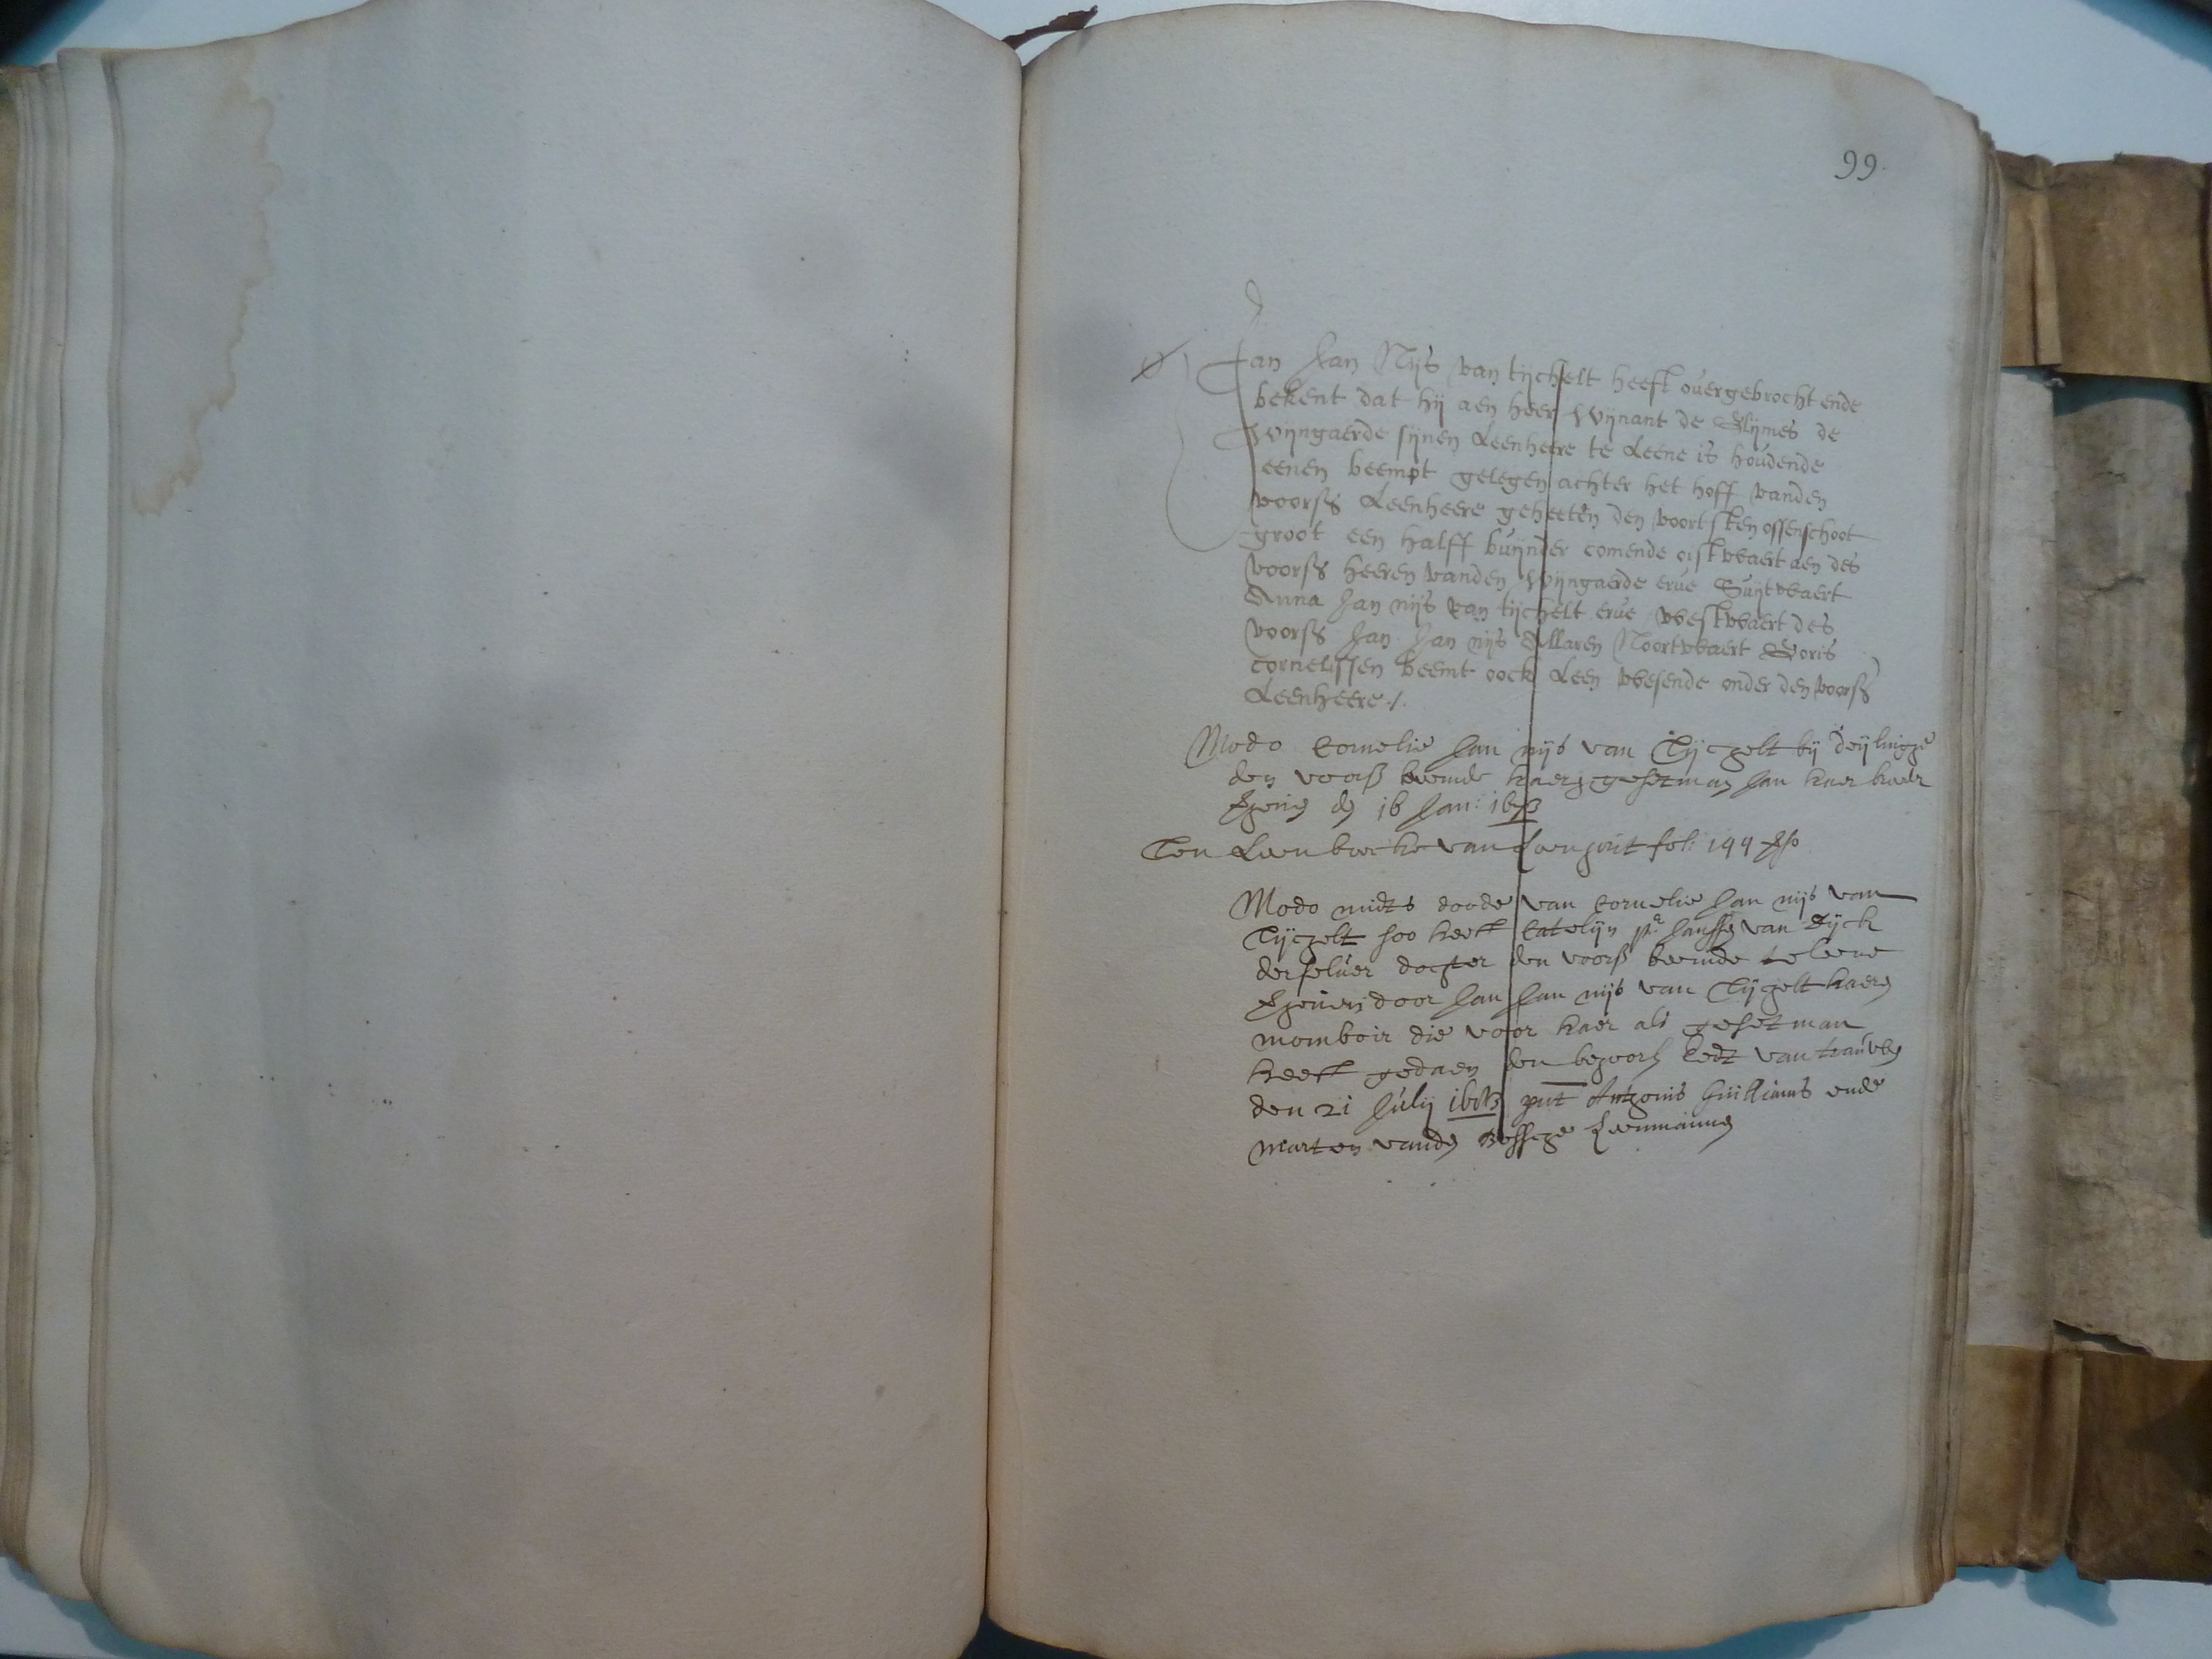 99.
Jan Jan Nijs van tijchelt heeft overgebrocht ende
bekent dat hij aen heer Wijnant de Glijmes de
Wijngaerde sijnen Leenheere te Leene is houdende
eenen beempt gelegen achter het hoff vanden
voorss Leenheere geheeten den voortsten ossenschoot
groot een halff buijnder comende oistwaert aen des
voorss heeren vanden Wijngaerde erve Suijtwaert
Anna Jan nijs van tijchelt erve westwaert des
voorss Jan Jan nijs Allaren Noortwaert Goris
cornelissen beemt oock Leen wesende onder den voorss
Leenheere ./.
Modo Cornelie Jan nijs van Tijchelt bij deijlinghe
den voorss beemde haer gesetman Jan
den 16 Jan:
Ten Leen boecke van fol: 144
Modo midts doode van Cornelie Jan nijs van
Tijchelt soo heeft Catelijn Janssen van Dijck
derselver dochter den voorss beemde te leene
door Jan Jan nijs van Tijchelt haeren
momboir die voor haer als gesetman
heeft gedaen den behoorl Eedt van trauwen
den 21 Julij put Anthonis Guilliams ende
Marten vanden Leenmannen